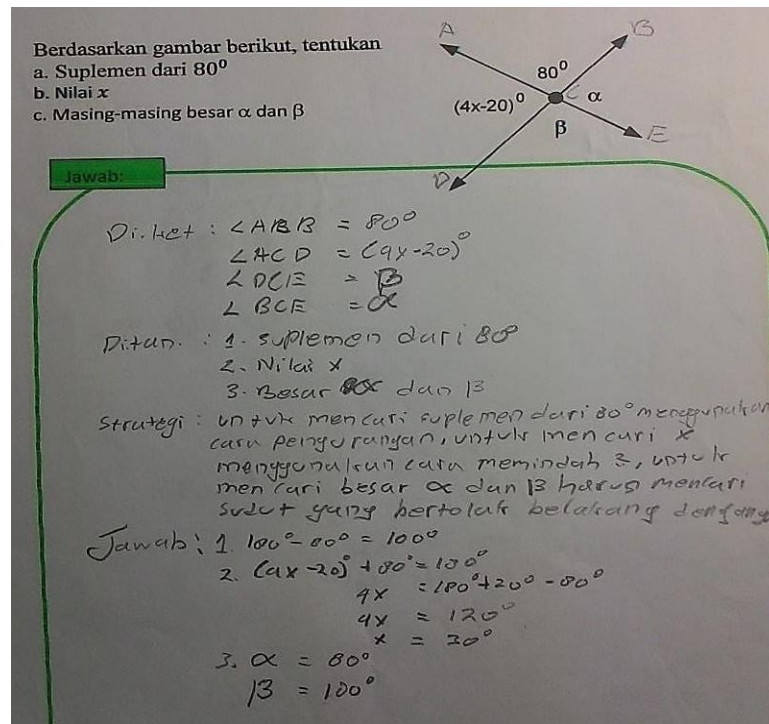 Berdasarkan gambar berikut, tentukan
a. Suplemen dari 80⁰
b. Nilai x
c. Masing-masing besar α dan β
A
B
80⁰
(4x-20)⁰
C
α
β
E
D
Jawab:
Di.ket : ∠ABB = 80⁰
∠ACD = (4x-20)⁰
∠DCE = β
∠BCE = α
Ditan. : 1. suplemen dari 80⁰
2. Nilai x
3. Besar α dan β
Strategi : untuk mencari suplemen dari 80⁰ menggunakan
cara pengurangan, untuk mencari x
menggunakan cara memindah 2, untuk
mencari besar α dan β harus mencari
sudut yang bertolak belakang dengang
Jawab : 1. 180⁰ - 80⁰ = 100⁰
2. (4x-20)⁰ + 80⁰ = 180⁰
4x = 180⁰ + 20⁰ - 80⁰
4x = 120⁰
x = 30⁰
3. α = 80⁰
β = 100⁰